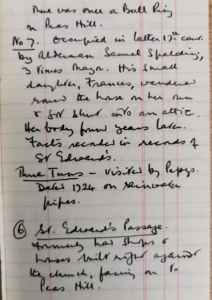 There was once a Bull Ring
in Peas Hill.
No 7. Occupied in latter 17th cent.
by Alderman Samuel Spalding,
3 times Mayor. His small
daughter, Frances, wandered
round the house on her own
& got shut into an attic.
Her body found years later.
Facts recorded in records of
St Edwards.
Three Tuns – visited by Pepys.
Date 1724 on rainwater
pipes.
⑥ St. Edward's Passage.
Formerly had shops &
houses built right against
the church, facing on to
Peas Hill.